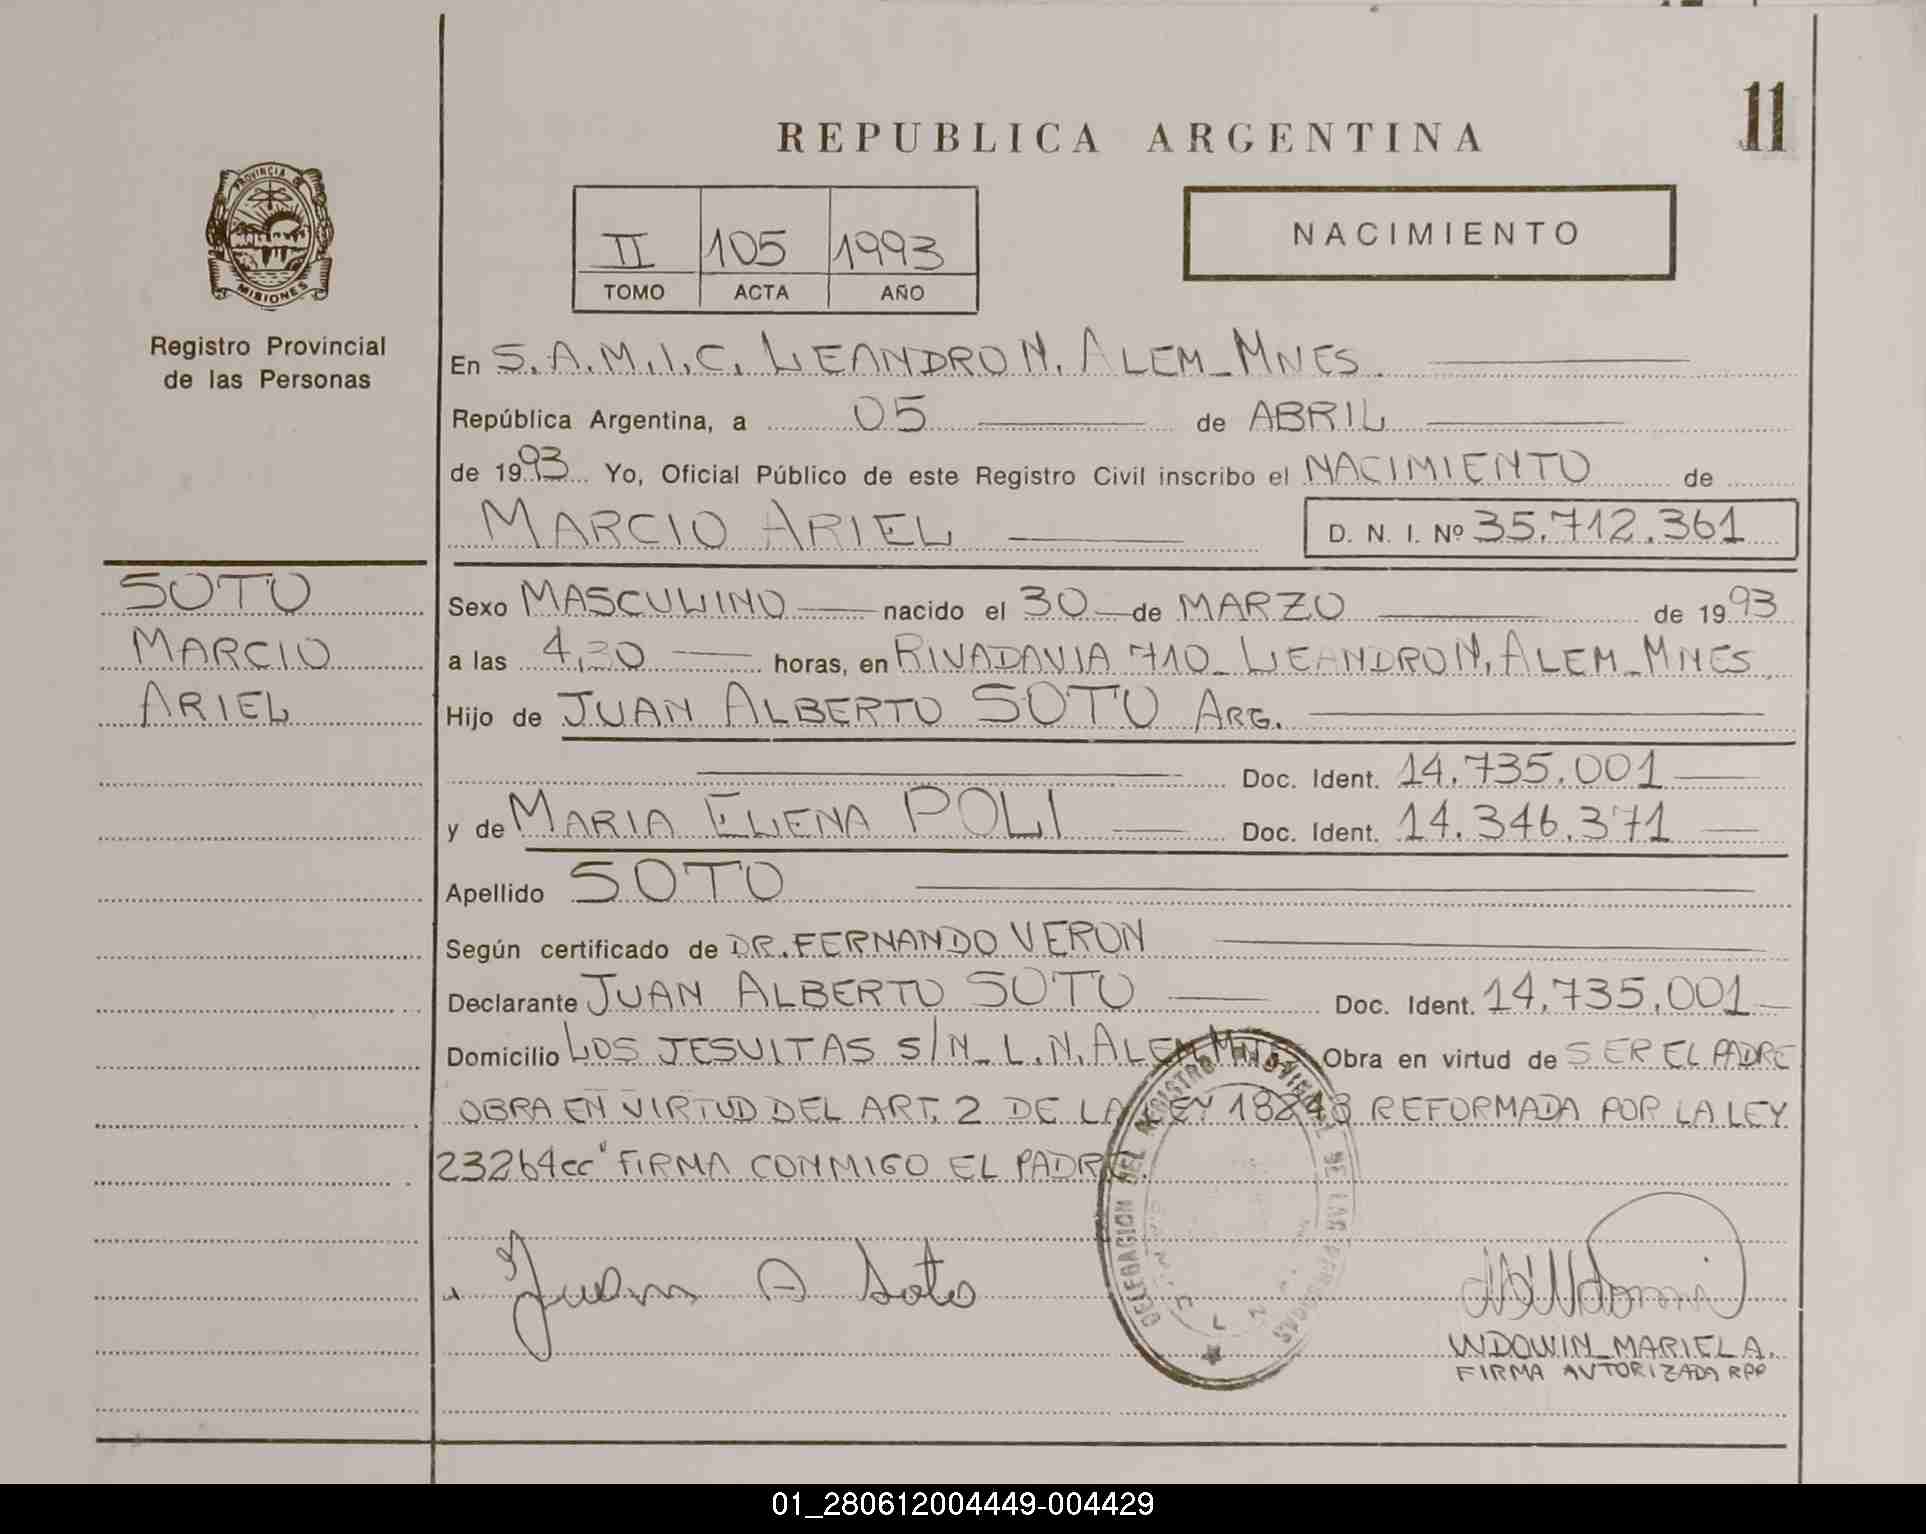 11
REPUBLICA ARGENTINA
PROVINCIA DE
MISIONES
Registro Provincial
de las Personas
II 105 1993
TOMO ACTA AÑO
NACIMIENTO
En S.A.M.I.C. LEANDRO N. ALEM_MNES.
República Argentina, a 05 de ABRIL
de 1993 Yo, Oficial Público de este Registro Civil inscribo el NACIMIENTO de
MARCIO ARIEL D. N. I. Nº 35.712.361
SOTO
MARCIO
ARIEL
Sexo MASCULINO nacido el 30 de MARZO de 1993
a las 4,30 horas, en RIVADAVIA 710_LEANDRO N. ALEM_MNES
Hijo de JUAN ALBERTO SOTO ARG.
Doc. Ident. 14.735.001
y de MARIA ELENA POLI Doc. Ident. 14.346.371
Apellido SOTO
Según certificado de DR. FERNANDO VERON
Declarante JUAN ALBERTO SOTO Doc. Ident. 14.735.001
Domicilio LOS JESUITAS S/N_L.N. ALEM MNES Obra en virtud de SER EL PADRE
OBRA EN VIRTUD DEL ART. 2 DE LA LEY 18248 REFORMADA POR LA LEY
23264cc" FIRMA CONMIGO EL PADRE
DELEGACION DEL REGISTRO PROVINCIAL DE LAS PERSONAS
Juan A Soto
WDOWIN_MARIEL A.
FIRMA AUTORIZADA RPP
01_280612004449-004429